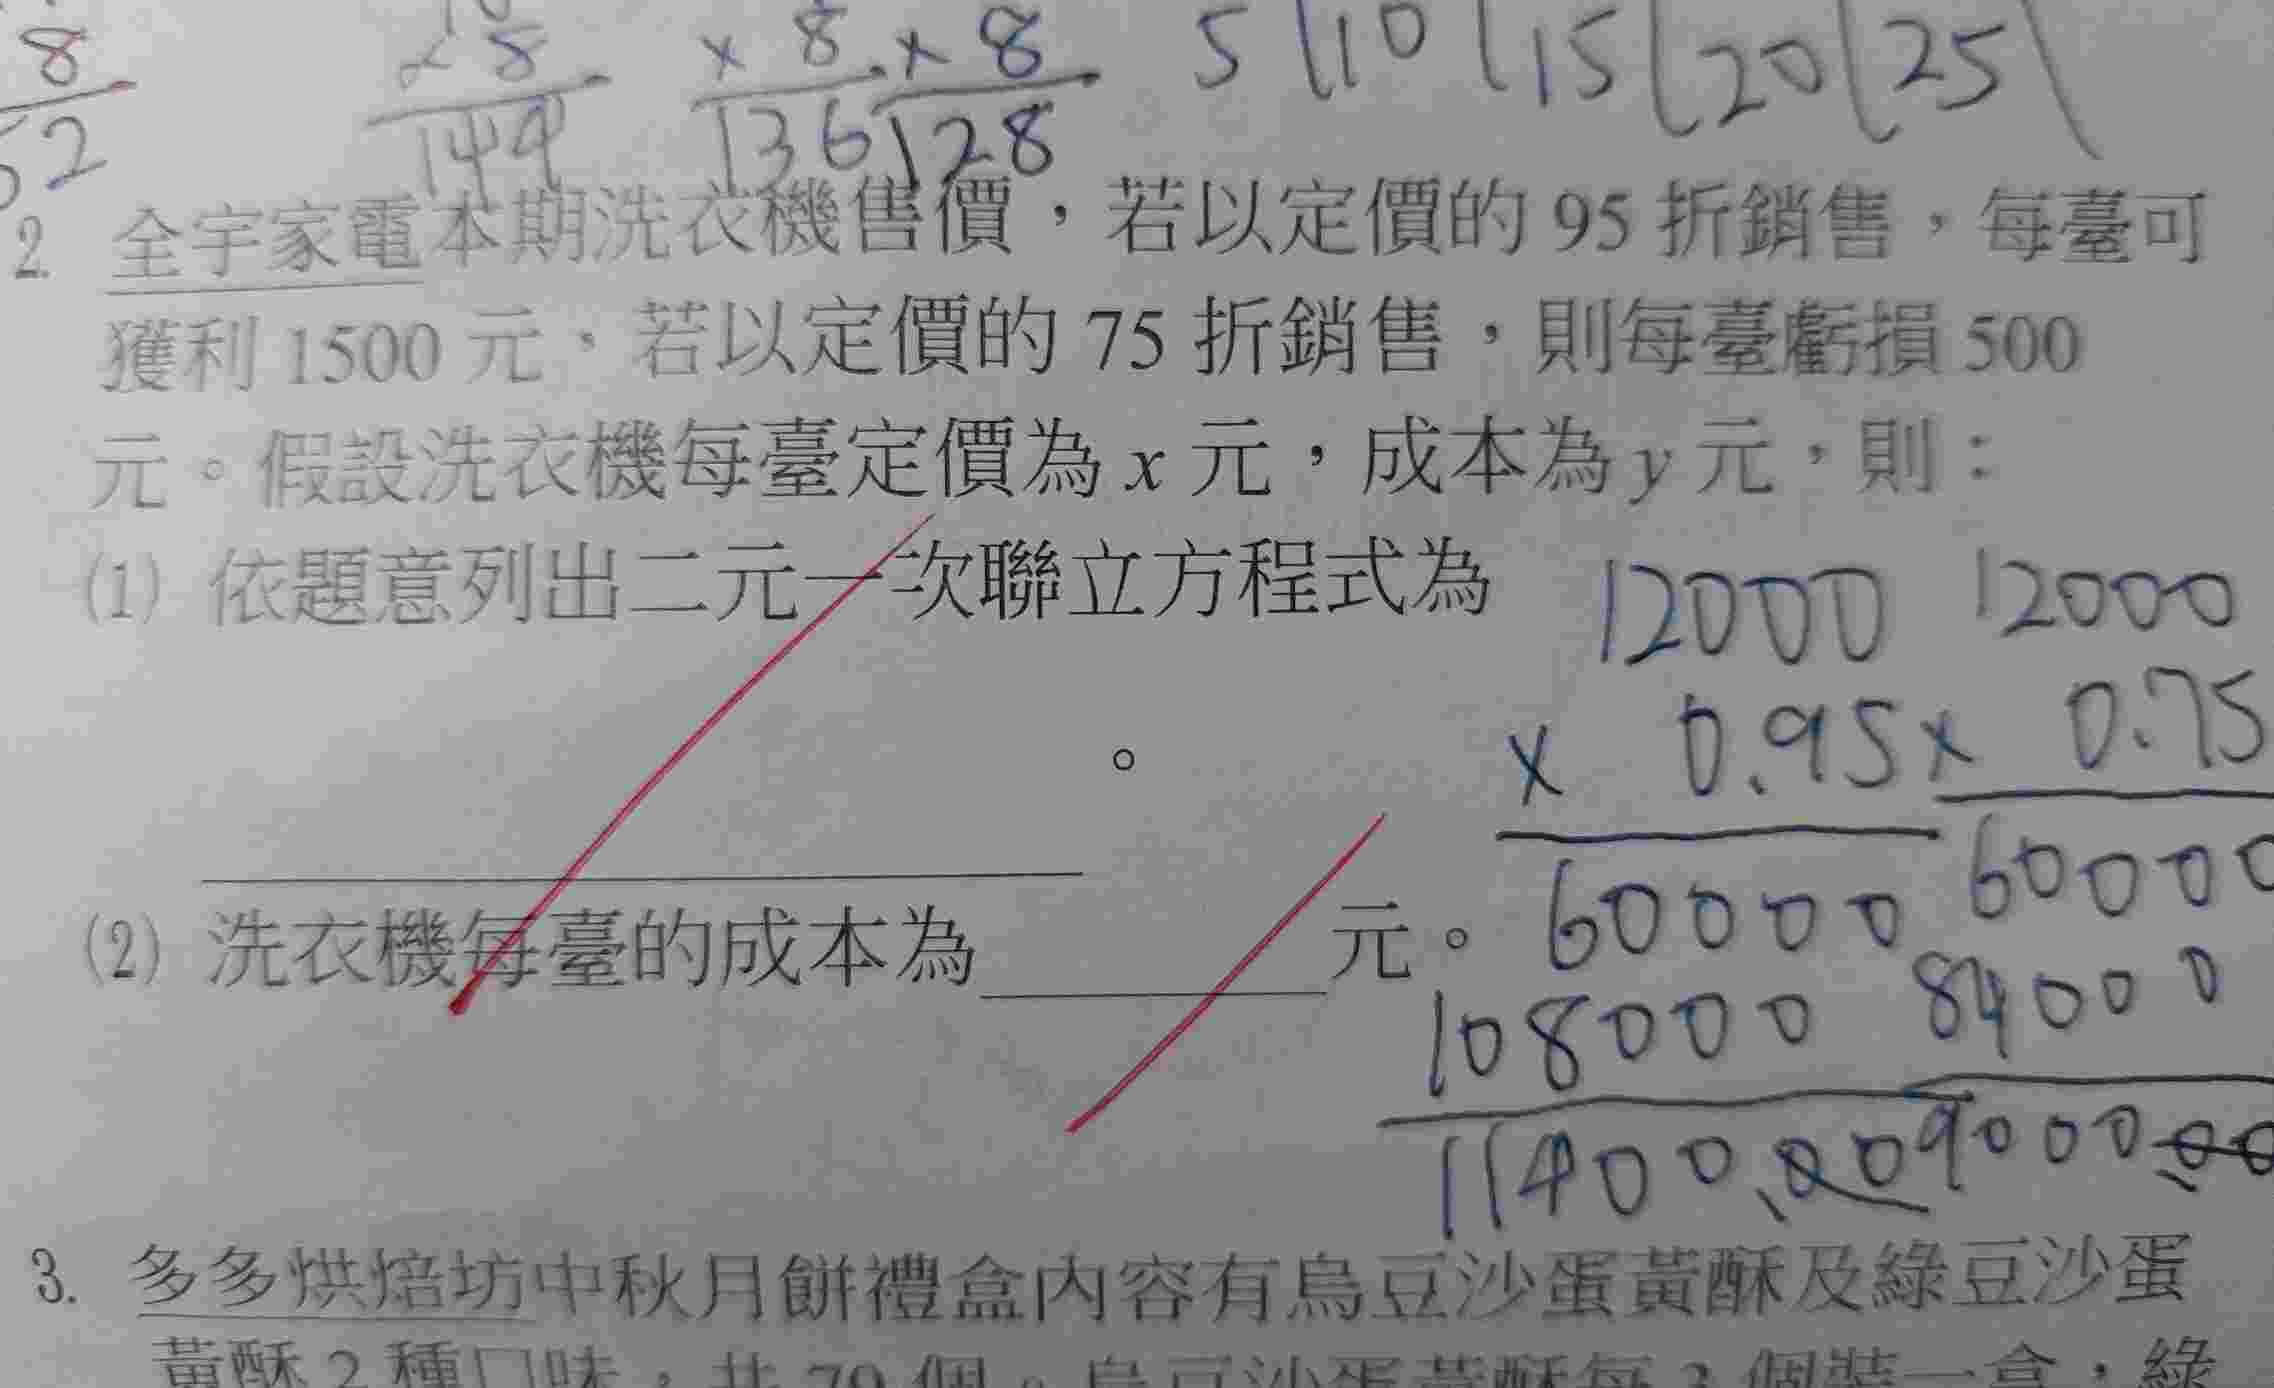 8
× 8
× 8
× 8
5 10 15 20 25
52
144
136
128
2. 全宇家電本期洗衣機售價，若以定價的 95 折銷售，每臺可
獲利 1500 元，若以定價的 75 折銷售，則每臺虧損 500
元。假設洗衣機每臺定價為 x 元，成本為 y 元，則：
(1) 依題意列出二元一次聯立方程式為
。
(2) 洗衣機每臺的成本為 元。
12000
× 0.95
60000
108000
11400.00
12000
× 0.75
60000
84000
9000.00
3. 多多烘焙坊中秋月餅禮盒內容有烏豆沙蛋黃酥及綠豆沙蛋
黃酥 2 種口味，共 79 個。烏豆沙蛋黃酥每 3 個裝一盒，綠